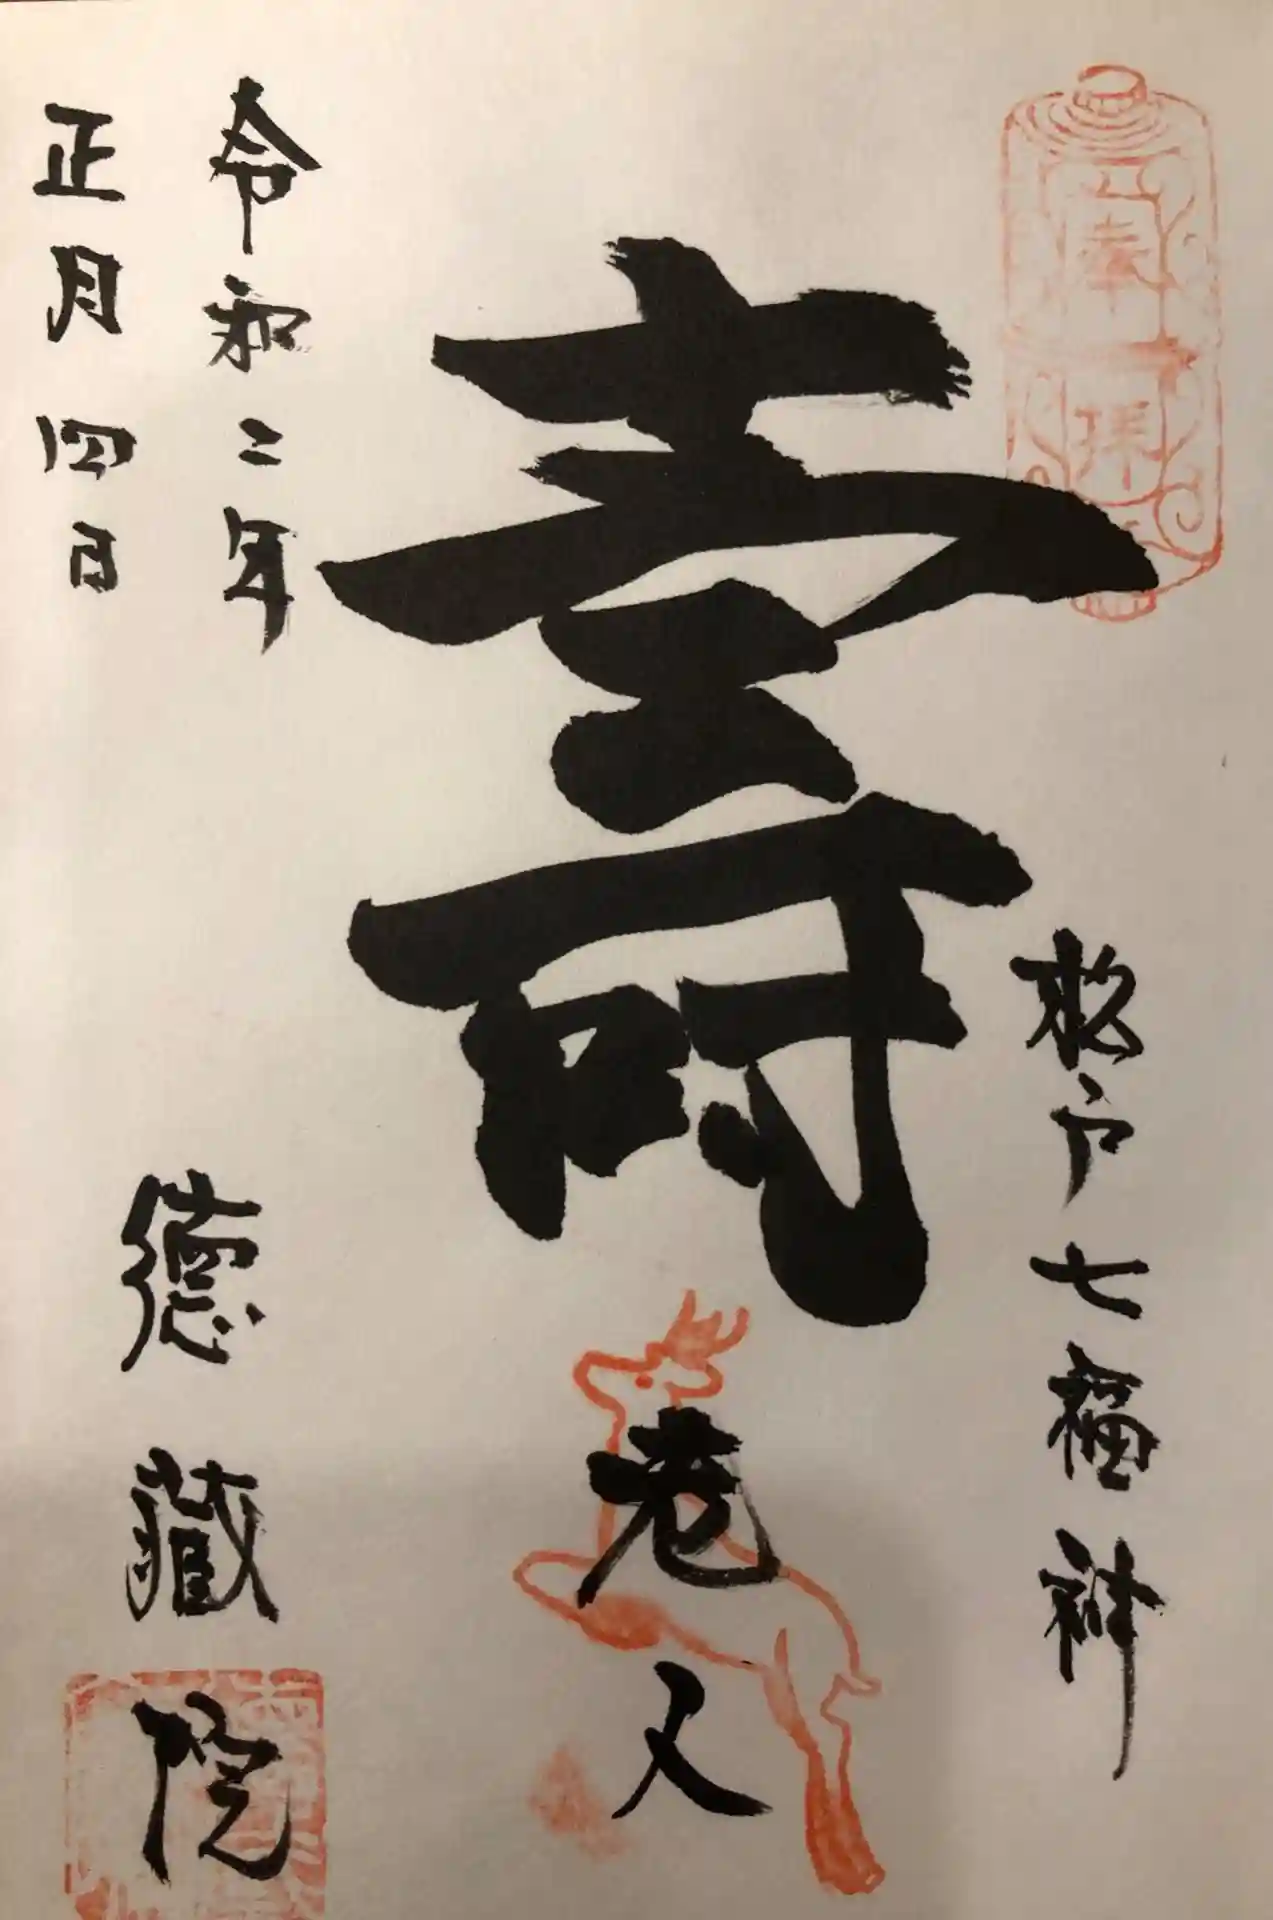 奉拝
松戸七福神
寿老人
令和二年
正月四日
徳蔵院